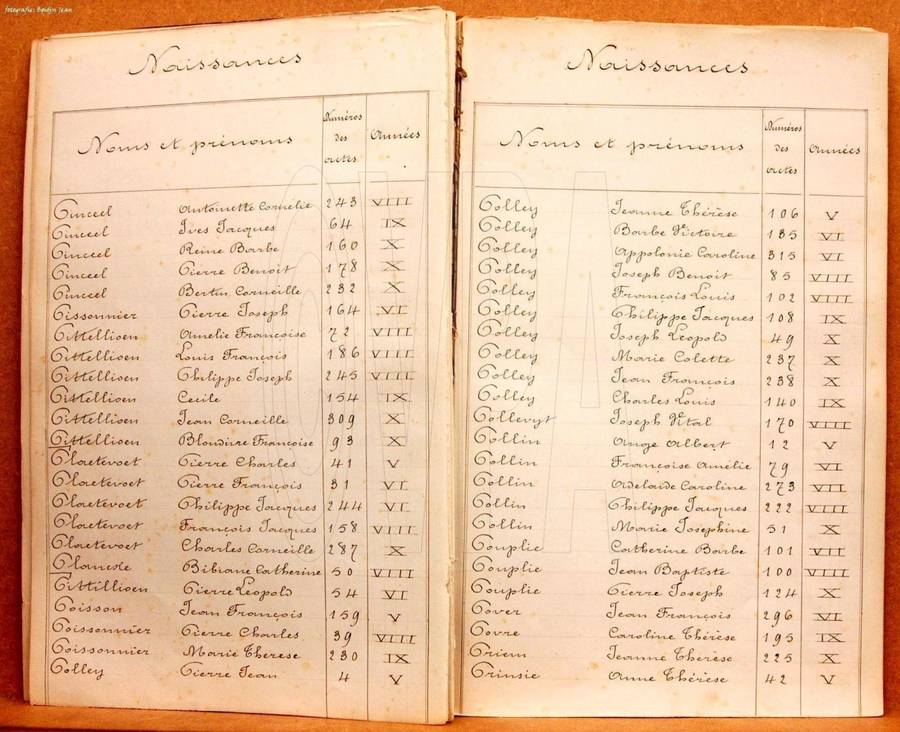 fotografie: Boudin Jean
Naissances
Noms et prénoms Numéros des actes Années
Pinceel Antoinette Cornelie 243 VIII
Pinceel Ives Jacques 64 IX
Pinceel Reine Barbe 160 X
Pinceel Pierre Benoit 178 X
Pinceel Bertin Corneille 232 X
Pissonnier Pierre Joseph 164 VI
Pittellioen Amelie Françoise 72 VIII
Pittellioen Louis François 186 VIII
Pittellioen Philippe Joseph 245 VIII
Pittellioen Cecile 154 IX
Pittellioen Jean Corneille 309 X
Pittellioen Blondine Françoise 93 X
Plaetevoet Pierre Charles 41 V
Plaetevoet Pierre François 31 VI
Plaetevoet Philippe Jacques 244 VI
Plaetevoet François Jacques 158 VIII
Plaetevoet Charles Corneille 287 X
Plancke Bibiane Catherine 50 VIII
Pittillioen Pierre Léopold 54 VI
Poisson Jean François 159 V
Poissonnier Pierre Charles 39 VIII
Poissonnier Marie Therese 230 IX
Polley Pierre Jean 4 V
Naissances
Noms et prénoms Numéros des actes Années
Polley Jeanne Thérèse 106 V
Polley Barbe Victoire 135 VI
Polley Appolonie Caroline 315 VI
Polley Joseph Benoit 85 VIII
Polley François Louis 102 VIII
Polley Philippe Jacques 108 IX
Polley Joseph Léopold 49 X
Polley Marie Colette 237 X
Polley Jean François 238 X
Polley Charles Louis 140 IX
Pollevyt Joseph Vital 170 VIII
Pollin Ange Albert 12 V
Pollin Françoise Amélie 79 VI
Pollin Adelaide Caroline 273 VII
Pollin Philippe Jacques 222 VIII
Pollin Marie Josephine 51 X
Pouplie Catherine Barbe 101 VII
Pouplie Jean Baptiste 100 VIII
Pouplie Pierre Joseph 124 X
Pover Jean François 296 VI
Povre Caroline Thérèse 195 IX
Priem Jeanne Thérèse 225 X
Prinsie Anne Thérèse 42 V